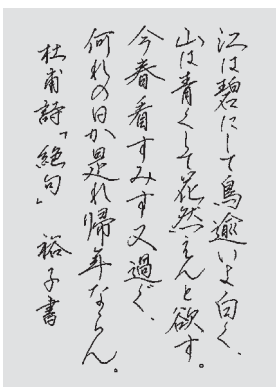 江は碧にして鳥逾いよ白く、
山は青くして花然えんと欲す。
今春看すみす又過ぐ、
何れの日か是れ帰年ならん。
杜甫詩「絶句」 裕子書